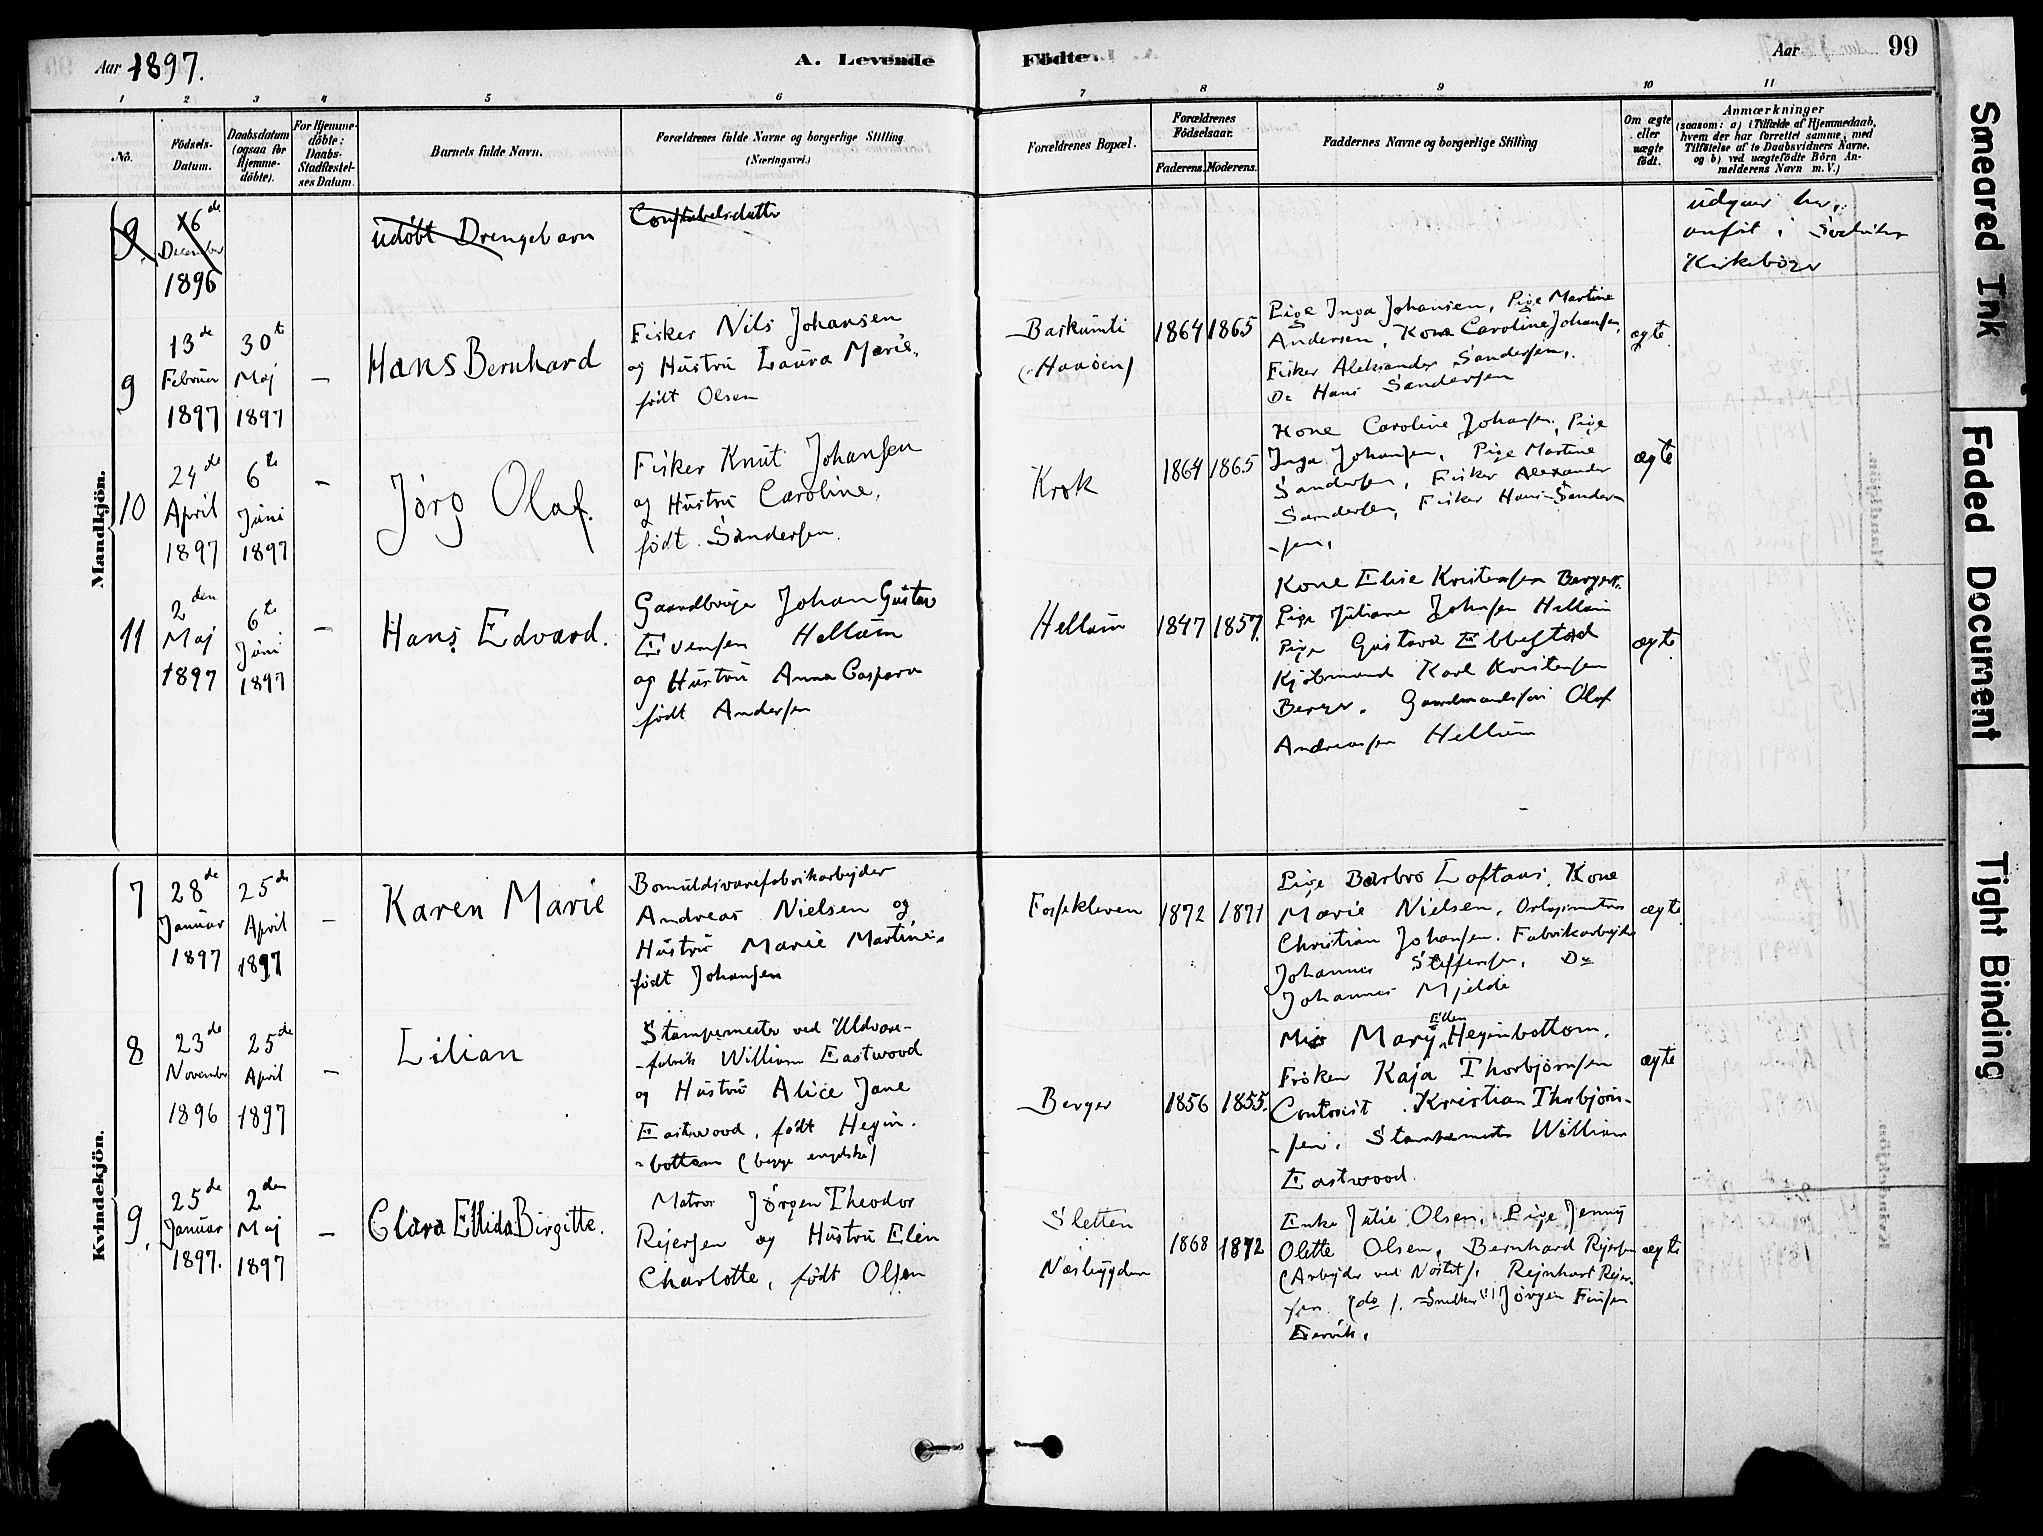 Aar 1897.
A. Levende
Födte.
Aar
99
1 2 3 4 5 6 7 8 9 10 11
No.
Födsels-
Datum.
Daabsdatum
(ogsaa for
Hjemme-
döbte).
For Hjemme-
döbte:
Daabs-
Stadfæstel-
ses Datum.
Barnets fulde Navn.
Forældrenes fulde Navne og borgerlige Stilling
(Næringsvei.)
Forældrenes Bopæl.
Forældrenes
Födselsaar.
Faderens.
Moderens.
Faddernes Navne og borgerlige Stilling
Om ægte
eller
uægte
födt.
Anmærkninger
(saasom: a) i Tilfælde af Hjemmedaab,
hvem der har forrettet samme, med
Tilföielse af to Daabsvidners Navne,
og b) ved uægtefödte Börn An-
melderens Navn m. V.)
Mandkjön.
9
16de
December
1896
udøbt Drengebarn
udgaar her,
anført i
Kirkebøger
9
13de
Februar
1897
30te
Maj
1897
—
Hans Bernhard
Fisker Nils Johansen
og Hustru Laura Marie,
født Olsen
(Haaøen)
1864
1865
Pige Inga Johansen, Pige Martine
Andersen, Kone Caroline Johansen,
Fisker Aleksander Sandersen,
Do Hans Sandersen
ægte
10
24de
April
1897
6te
Juni
1897
—
Jørg Olaf.
Fisker Knut Johansen
og Hustru Caroline,
født Sandersen.
Krok
1864
1865
Kone Caroline Johansen, Pige
Inga Johansen, Pige Martine
Sandersen, Fisker Alexander
Sandersen, Fisker Hans Sander-
-sen.
ægte
11
2den
Maj
1897
6te
Juni
1897
—
Hans Edvard.
Gaardbruger Johan Gustav
Evensen Hellum
og Hustru Anna Caspara
født Andersen
Hellum
1847
1857.
Kone Elise Kristensen Berger.
Pige Juliane Johnsen Hellum
Pige Gustava Ebbestad
Kjøbmand Karl Kristensen
Berger. Gaardmandssøn Olaf
Andreassen Hellum
ægte
Kvindekjön.
7
28de
Januar
1897
25de
April
1897
—
Karen Marie
Bomuldsvarefabrikarbejder
Andreas Nielsen og
Hustru Marie Martine,
født Johansen
Fossekleven
1872
1871
Pige Barbro Loftaas, Kone
Marie Nielsen,
Christian Johansen. Fabrikarbejder
Johannes Steffensen, Do
Johannes Mjelde
ægte
8
23de
November
1896
25de
April
1897
—
Lilian
Stampemester ved Uldvare-
-fabrik William Eastwood
og Hustru Alice Jane
Eastwood, født Hegin-
-bottom (begge engelske)
Berger
1856
1855.
Miss Mary Ellen Heginbottom.
Frøken Kaja Thorbjørnsen
Contorist Kristian Thorbjørn-
-sen, Stampemester William
Eastwood.
ægte
9.
25de
Januar
1897.
2den
Maj
1897
—
Clara Ellida Birgitte.
Matros Jørgen Theodor
Rejersen og Hustru Elen
Charlotte, født Olsen
Sletten
Næsbygden
1868
1872
Enke Julie Olsen, Pige Jenny
Olette Olsen, Bernhard Rejersen
(Arbejder ved Nøstet), Rejnhart Rejer-
sen (do), Snedker Jørgen
ægte
Smeared Ink
Faded Document
Tight Binding